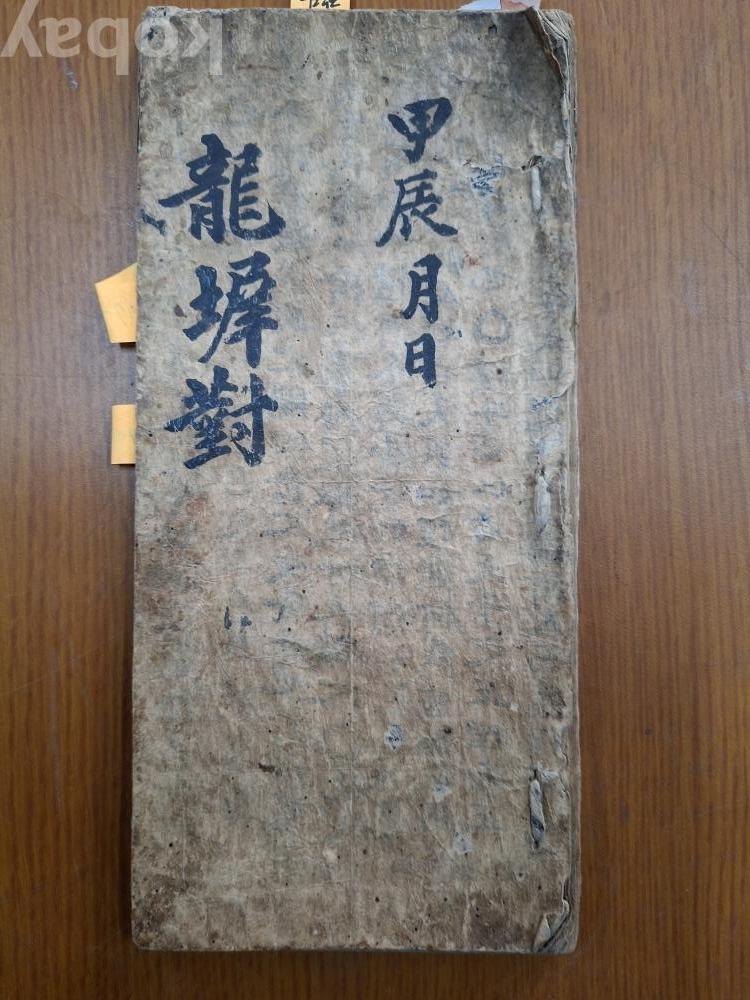 甲辰月日
龍墀對
kobay